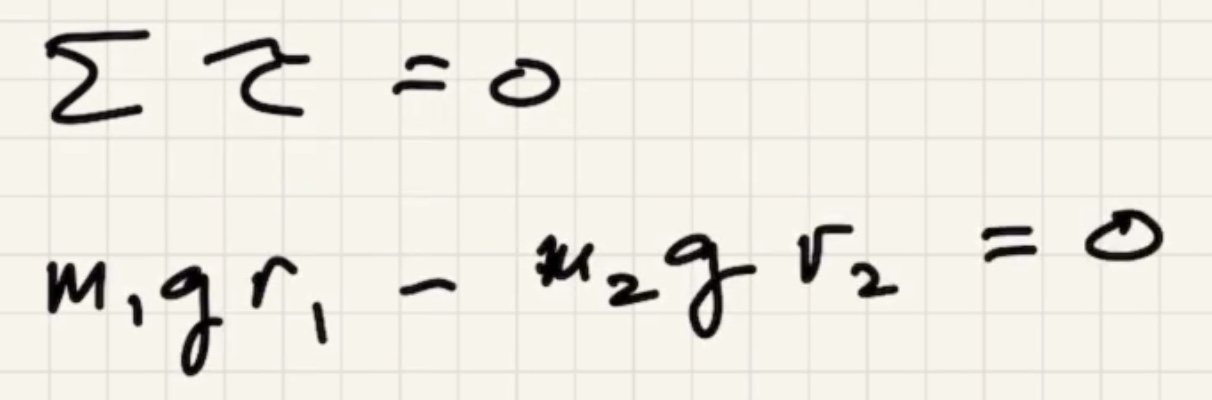 Σ τ = 0
m₁g r₁ - m₂g r₂ = 0